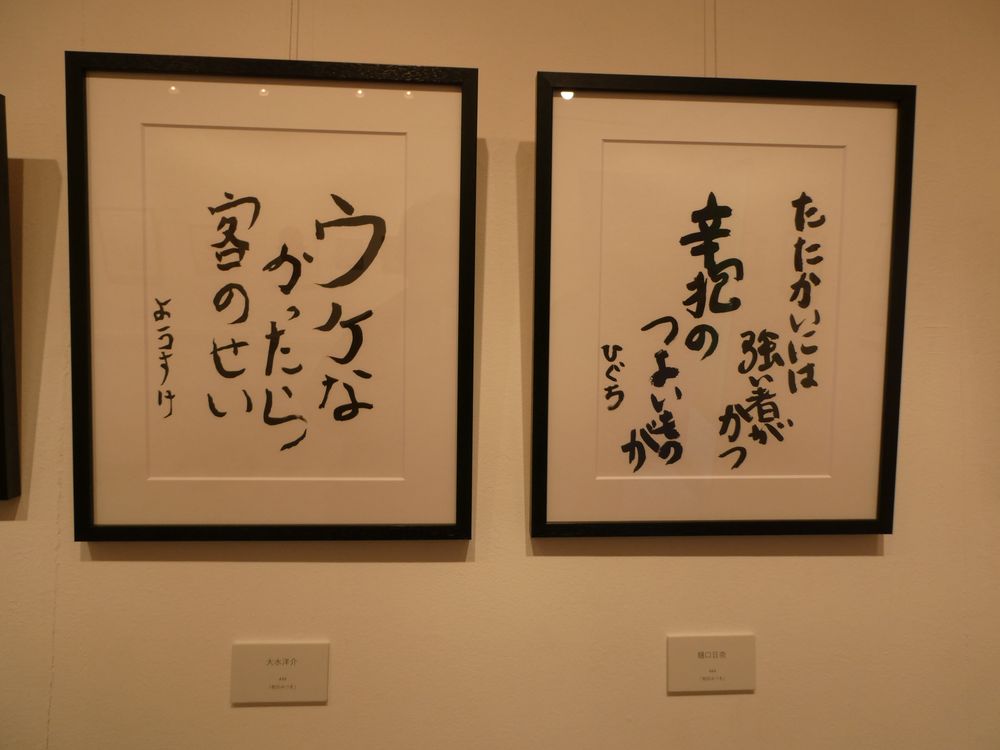 ウケな
かったら
客のせい
ようすけ
たたかいには
強い者が
かつ
辛抱の
つよいもの
が
ひぐち
大水洋介
樋口日奈